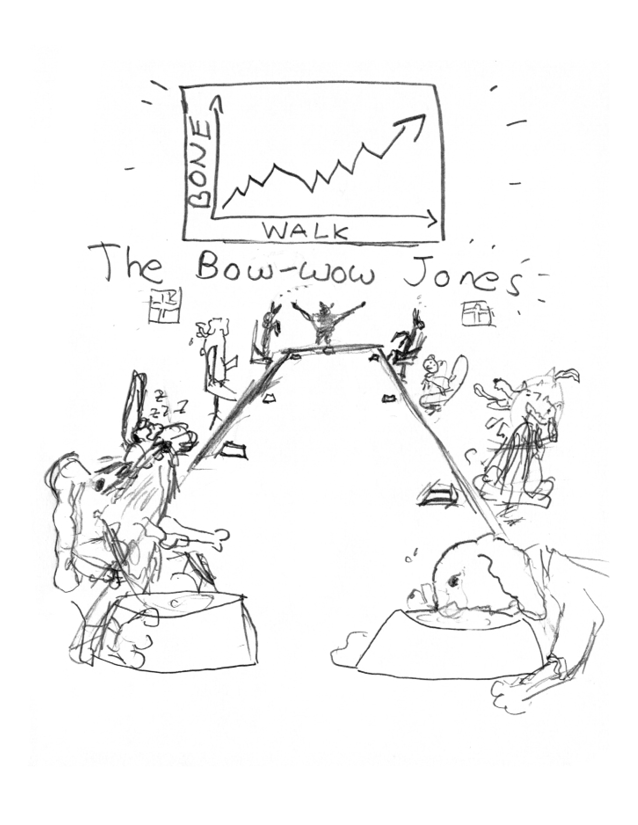 BONE
WALK
The Bow-wow Jones
z
z z z